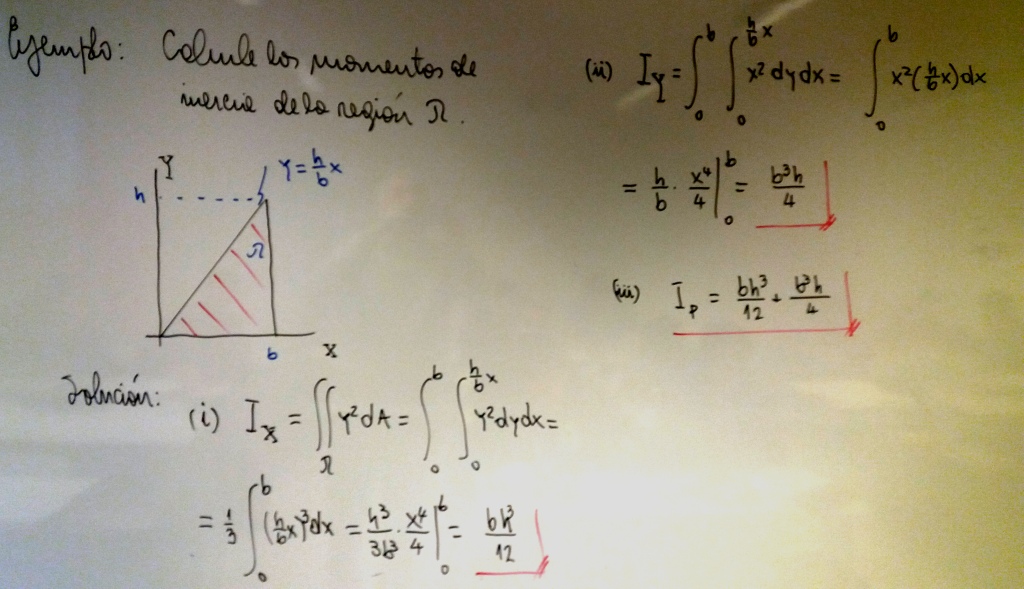 Ejemplo: Calcule los momentos de
inercia de la región R.
Y
h
Y = h/b x
R
b
X
Solución:
(i) I_X = ∬_R Y² dA = ∫_0^b ∫_0^{h/b x} Y² dy dx =
= 1/3 ∫_0^b (h/b x)³ dx = h³/3b³ · x⁴/4 |_0^b = bh³/12
(ii) I_Y = ∫_0^b ∫_0^{h/b x} x² dy dx = ∫_0^b x² (h/b x) dx
= h/b · x⁴/4 |_0^b = b³h/4
(iii) I_P = bh³/12 + b³h/4